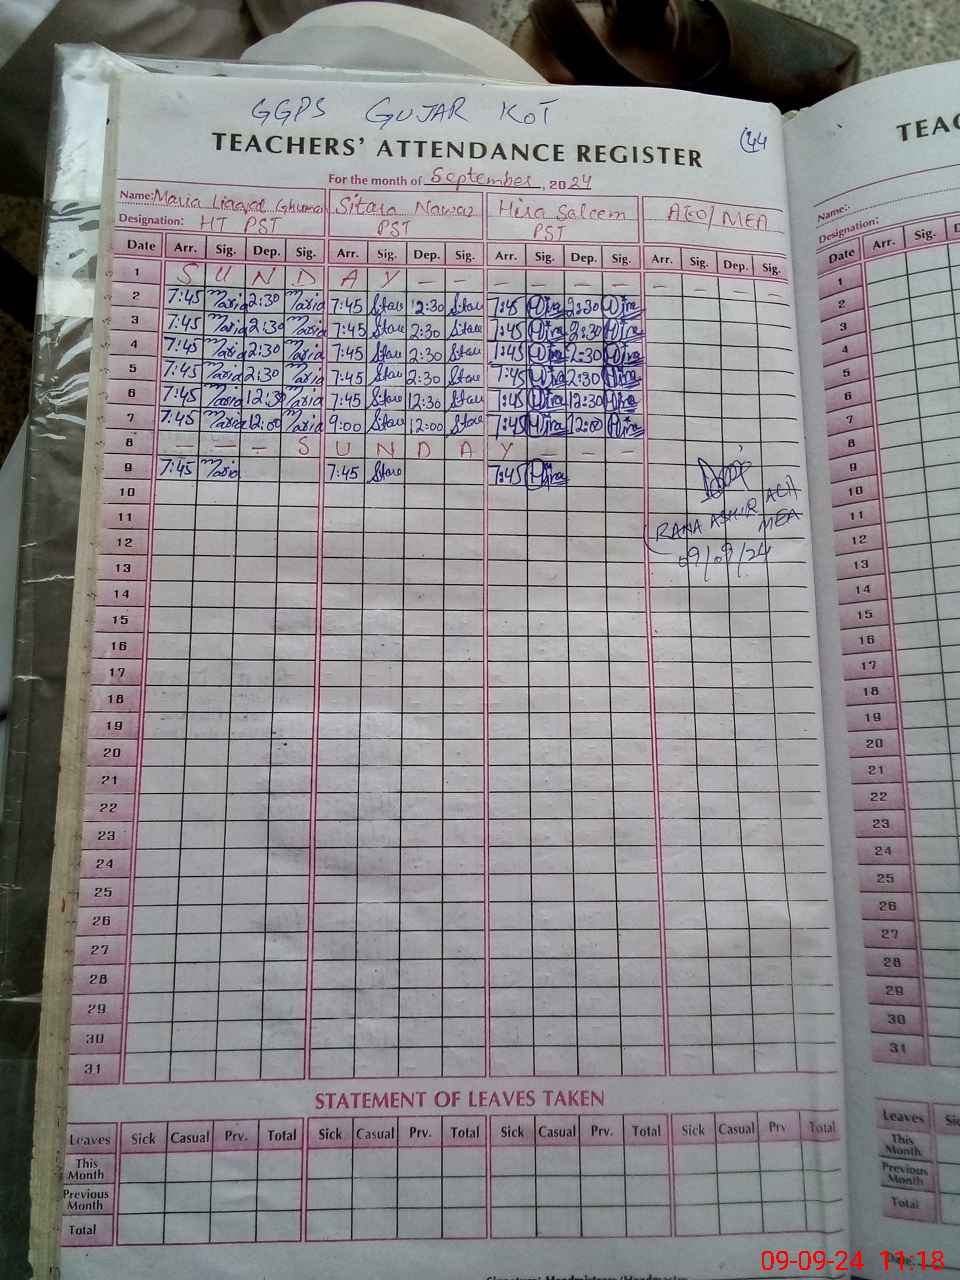 GGPS GUJAR KOT
44
TEACHERS' ATTENDANCE REGISTER
For the month of September, 2024
Name: Maria Liaqat Ghuman Sitara Nawaz Hira Saleem AEO/MEA
Designation: HT PST PST PST
Date Arr. Sig. Dep. Sig. Arr. Sig. Dep. Sig. Arr. Sig. Dep. Sig. Arr. Sig. Dep. Sig.
1 S U N D A Y - - - - - - - - - -
2 7:45 Maria 2:30 Maria 7:45 Star 12:30 Star 7:45 Hira 2:30 Hira
3 7:45 Maria 2:30 Maria 7:45 Star 2:30 Star 7:45 Hira 2:30 Hira
4 7:45 Maria 2:30 Maria 7:45 Star 2:30 Star 7:45 Hira 2:30 Hira
5 7:45 Maria 2:30 Maria 7:45 Star 2:30 Star 7:45 Hira 2:30 Hira
6 7:45 Maria 12:30 Maria 7:45 Star 12:30 Star 7:45 Hira 12:30 Hira
7 7:45 Maria 12:00 Maria 9:00 Star 12:00 Star 7:45 Hira 12:00 Hira
8 - - - S U N D A Y - - -
9 7:45 Maria 7:45 Star 7:45 Hira
10
11 RANA ASHIR ALI
12 MEA
13 09/09/24
14
15
16
17
18
19
20
21
22
23
24
25
26
27
28
29
30
31
STATEMENT OF LEAVES TAKEN
Leaves Sick Casual Prv. Total Sick Casual Prv. Total Sick Casual Prv. Total Sick Casual Prv Total
This Month
Previous Month
Total
TEAC
Name:
Designation:
Date Arr. Sig. D
1
2
3
4
5
6
7
8
9
10
11
12
13
14
15
16
17
18
19
20
21
22
23
24
25
26
27
28
29
30
31
Leaves Sic
This Month
Previous Month
Total
09-09-24 11:18